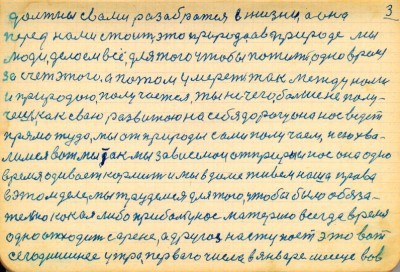 3
должны с вами разабратся в жизни, а она
перед нами стоит, это природа, а в природе мы
люди, делаем всё для того чтобы пожить одно время
за счет этого, а потом умереть так между нами
и природою, получается, ты не чего, больше не полу-
чешь, как сваю развитою на себя дорогу она нас ведёт
прямо туда, мы от природы сами получаем, и сохва-
лимся вот мы так мы зависимы от природы нас она одно
время одивает кормит и мы в доме живем наша права
в этом деле, мы трудемся для того, чтобы было обяза-
телно какая либо прибаль, у нас материю всегда время
одно отходит с арене, а другоя наступает это вот
сегодняшнее утро, первого числа в январе месеце вов